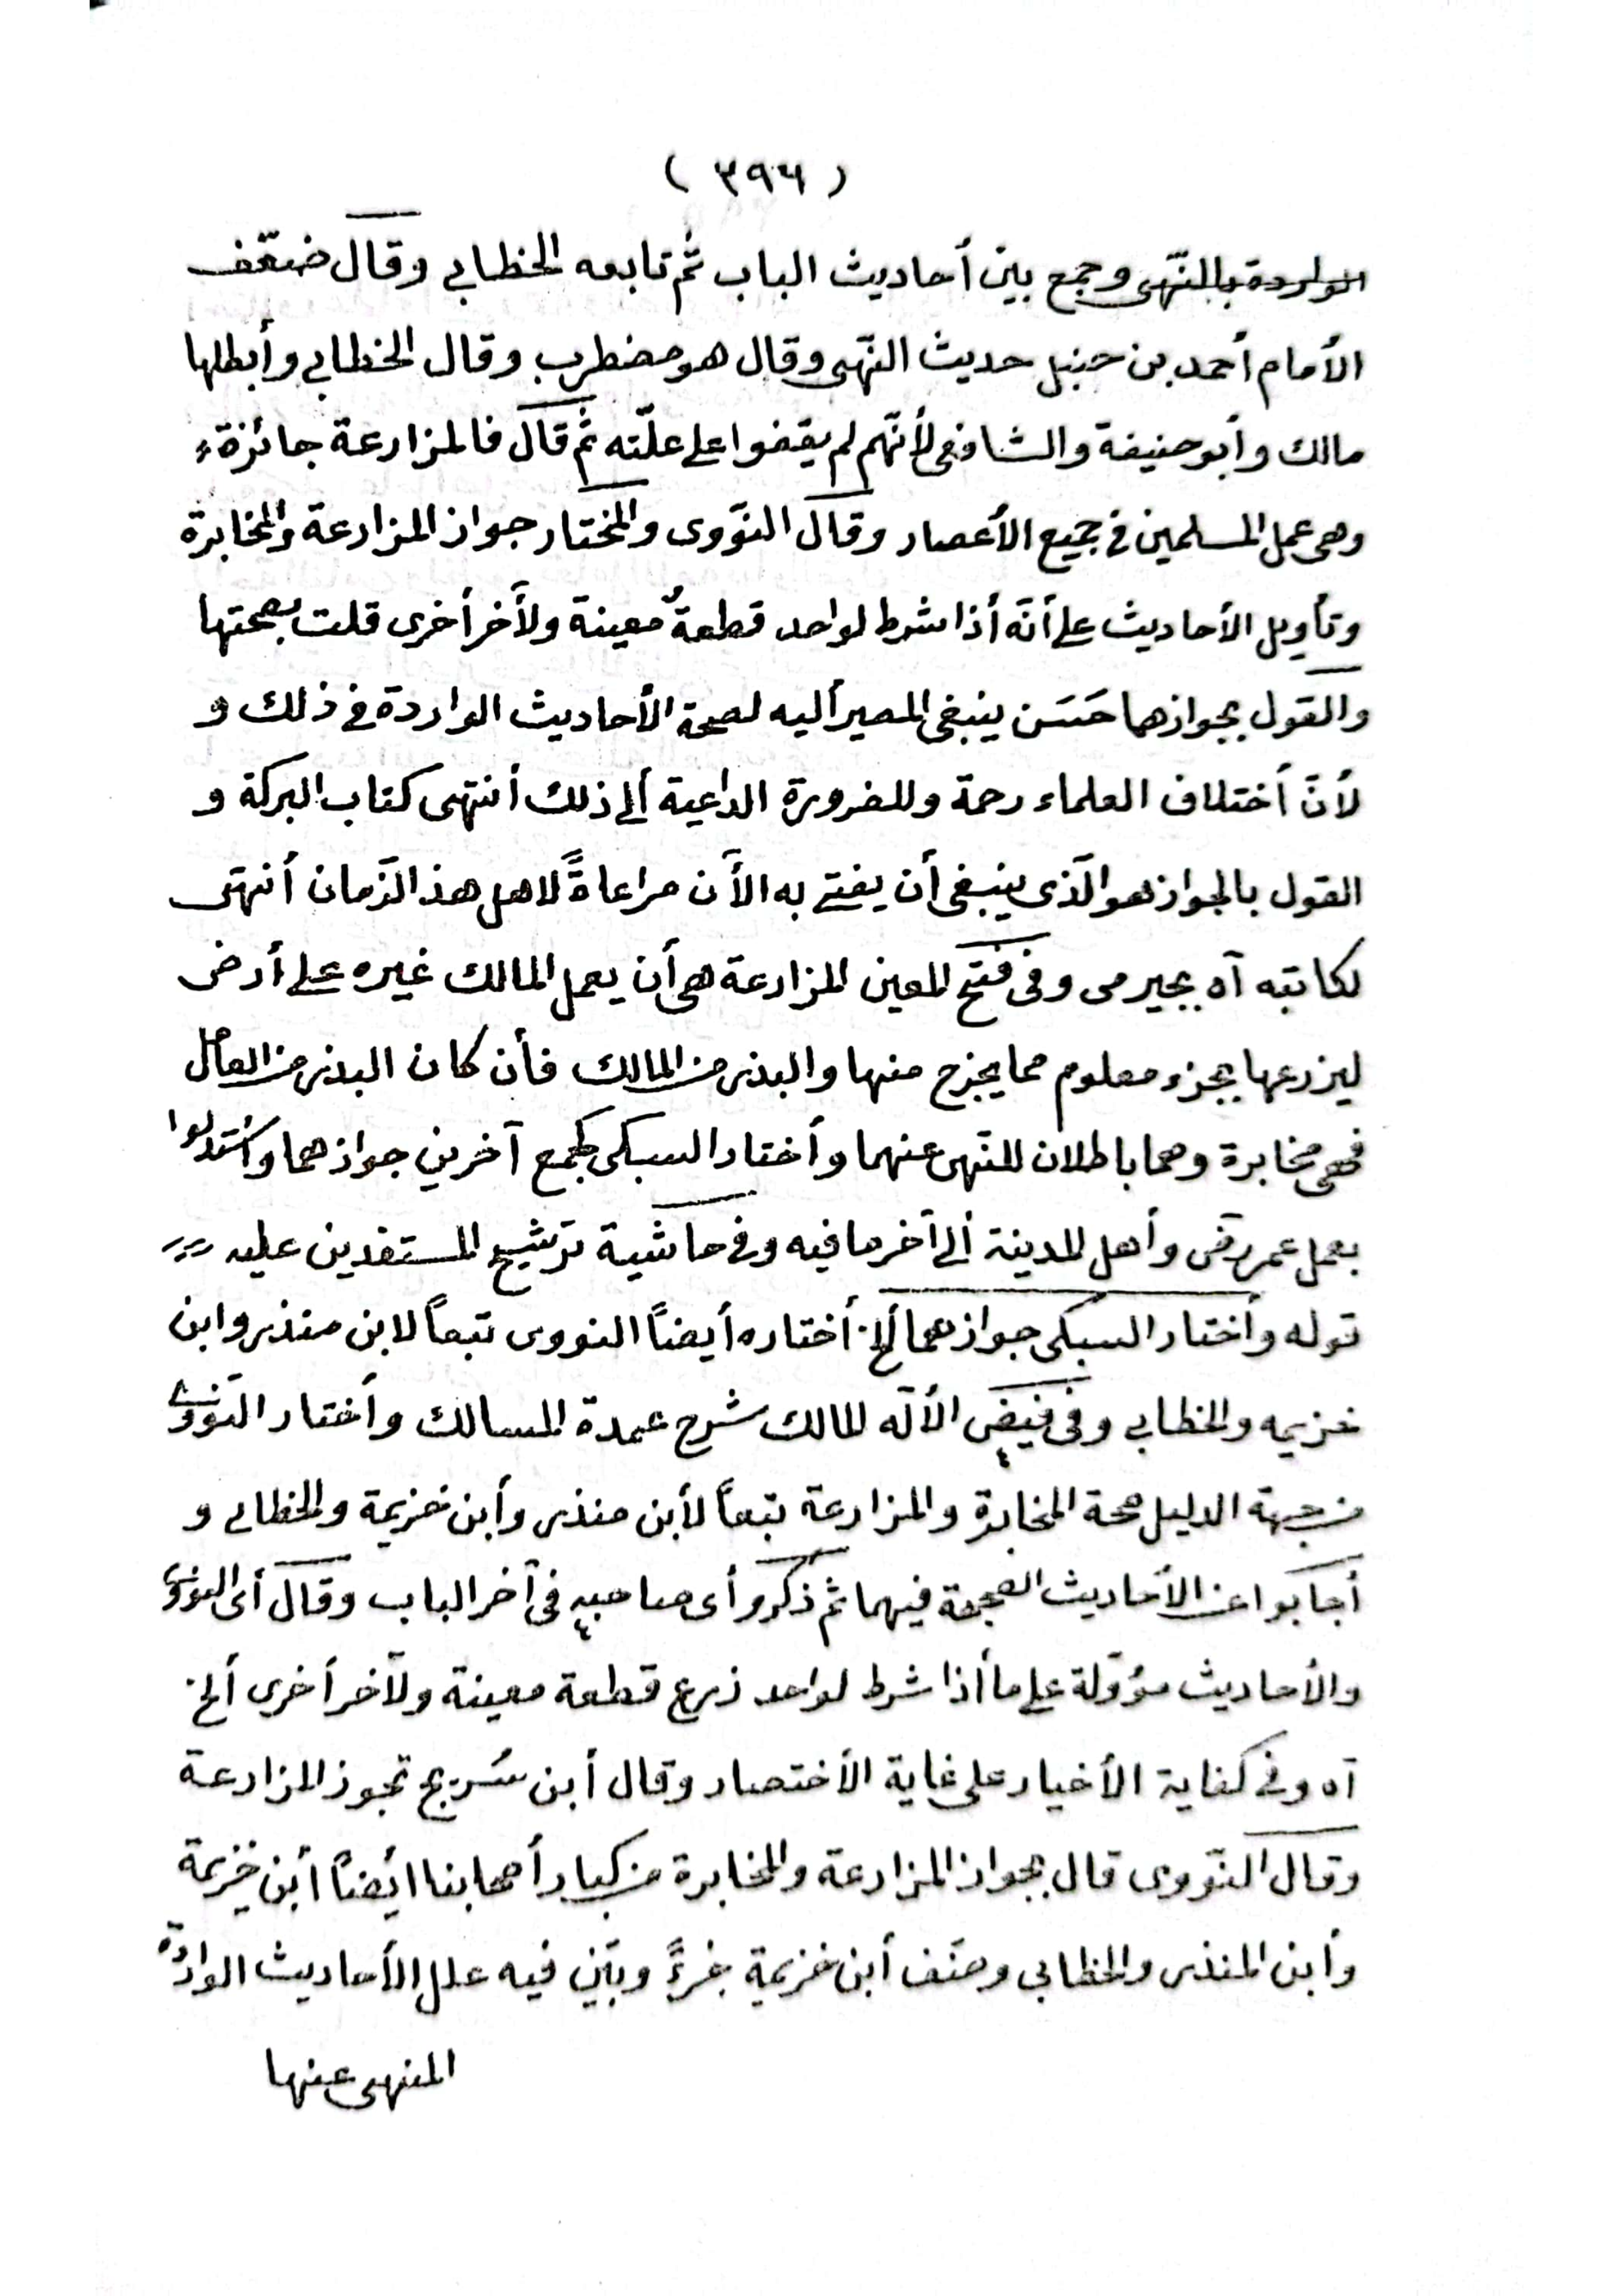 ( ٣٩٦ )
الواردة بالنّهى وجمع بين أحاديث الباب ثم تابعه الخطابي وقال ضعّف
الأمام أحمد بن حنبل حديث النّهى وقال هو مضطرب وقال الخطابي وأبطلها
مالك وأبو حنيفة والشافعى لأنّهم لم يقفوا على علّته ثم قال فالمزارعة جائزة
وهى عمل المسلمين فى جميع الأعصار وقال النّووى والمختار جواز المزارعة والمخابرة
وتأويل الأحاديث على أنّه أذا شرط لواحد قطعةٌ معينة ولأخر أخرى قلت بصحتها
والقول بجوازهما حَسَن ينبغى المصير أليه لصحة الأحاديث الواردة فى ذلك و
لأنّ أختلاف العلماء رحمة وللضرورة الداعية ألى ذلك أنتهى كتاب البركة و
القول بالجواز هو الّذى ينبغى أن يفتى به الأن مراعاةً لاهل هذ الزّمان أنتهى
لكاتبه آه بجيرمى وفى فتح المعين المزارعة هى أن يعمل المالك غيره على أرض
ليزرعها بجزء معلوم مما يخرج منها والبذر من المالك فأن كان البذر من العامل
فهى مخابرة وهما باطلان للنّهى عنهما وأختار السبكى كجمع آخرين جوازهما وأستدلوا
بعمل عمر رضى وأهل المدينة ألى آخر ما فيه وفى حاشية ترشيح المستفدين عليه
قوله وأختار السبكى جوازهما ألخ أختاره أيضاً النووى تبعاً لابن منذر وابن
خزيمه والخطابي وفى فيض الألّه المالك شرح عمدة المسالك وأختار النّووى
من جهة الدليل صحة المخابرة والمزارعة تبعاً لأبن منذر وأبن خزيمة والخطابى و
أجابوا عن الأحاديث الصحيحة فيهما ثم ذكر وأى صاحبيه فى آخر الباب وقال أى النووى
والأحاديث مؤوّلة على ما أذا شرط لواحد زرع قطعة معينة ولآخر أخرى ألخ
آه وفى كفاية الأخيار على غاية الأختصار وقال أبن سُريج تجوز المزارعة
وقال النّووى قال بجواز المزارعة والمخابرة من كبار أصحابنا أيضاً أبن خزيمة
وأبن المنذر والخطابي وصنّف أبن خزيمة جزءً وبيّن فيه علل الأحاديث الواردة
المنهى عنها